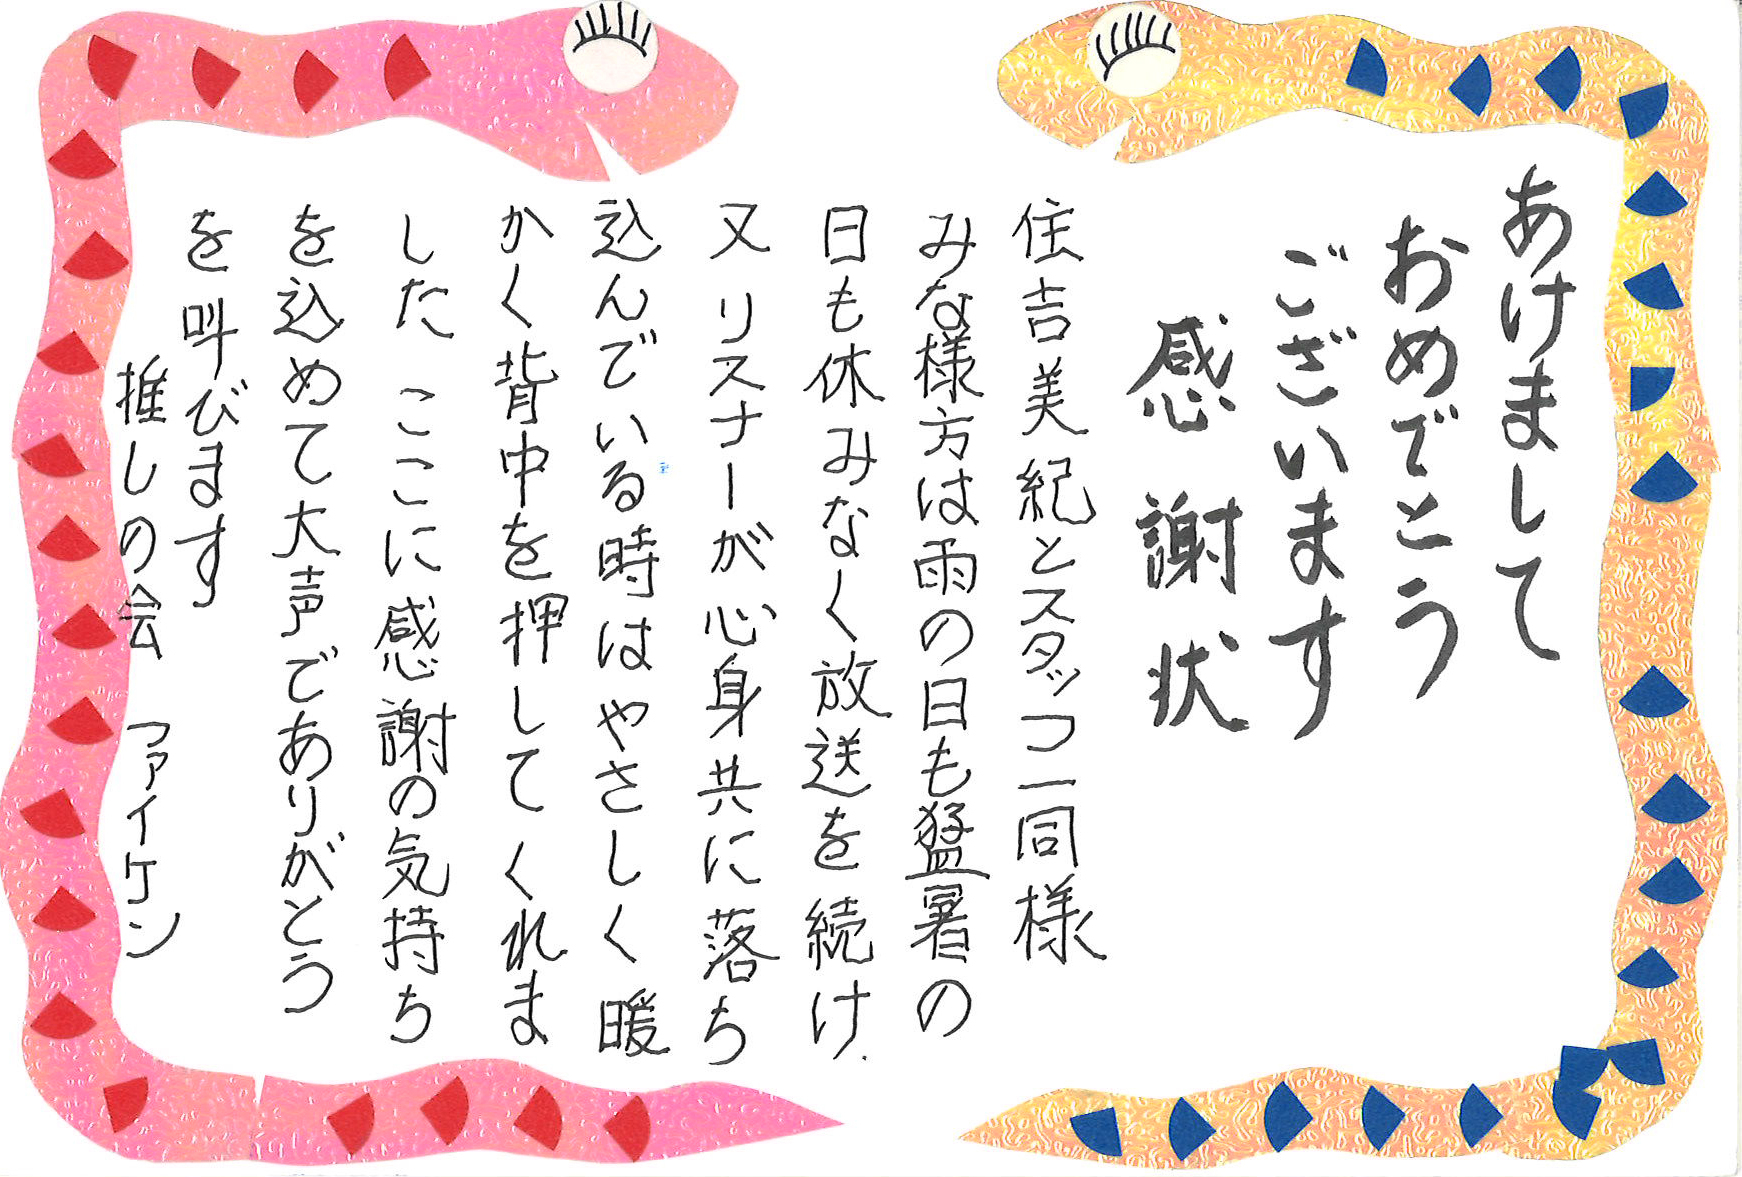 あけまして
おめでとう
ございます
感謝状
住吉美紀とスタッフ一同様
みな様方は雨の日も猛暑の
日も休みなく放送を続け
又リスナーが心身共に落ち
込んでいる時はやさしく暖
かく背中を押してくれま
した ここに感謝の気持ち
を込めて大声でありがとう
を叫びます
推しの会 ファイケン